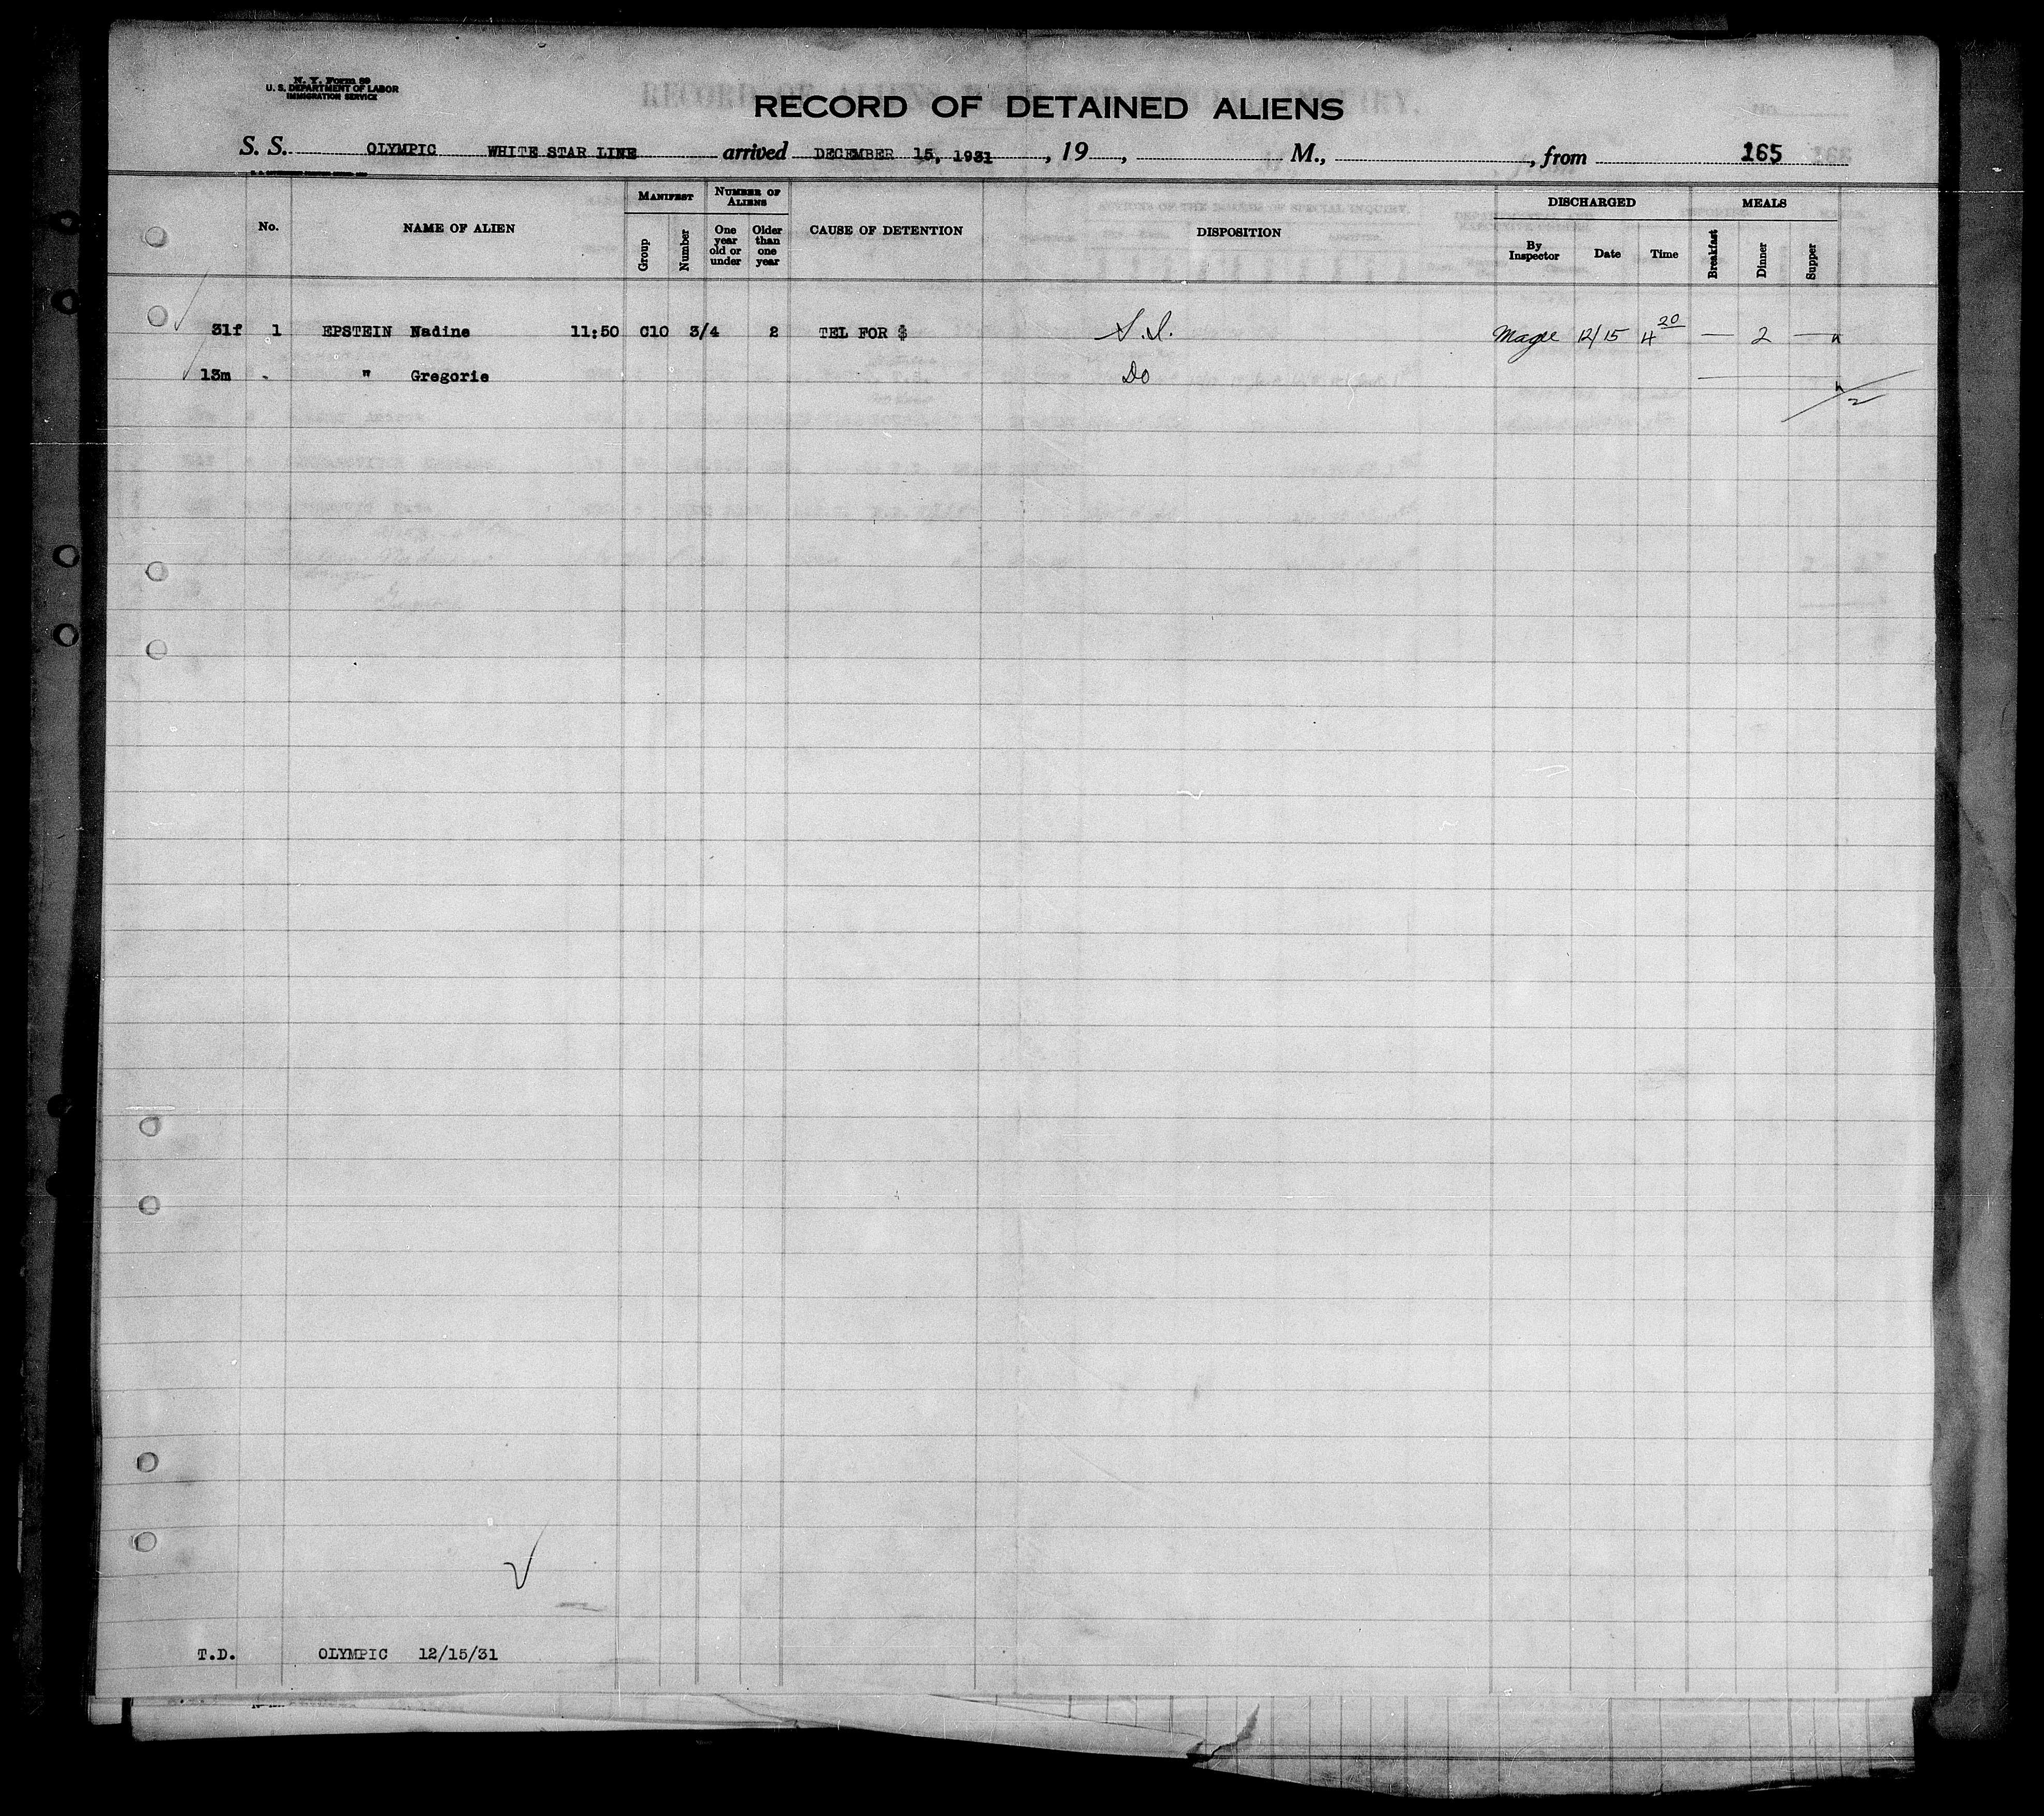 N. Y. Form 89
U. S. DEPARTMENT OF LABOR
IMMIGRATION SERVICE
RECORD OF DETAINED ALIENS
S. S. OLYMPIC WHITE STAR LINE arrived DECEMBER 15, 1931, 19, M., from 165
No. NAME OF ALIEN MANIFEST Group Number NUMBER OF ALIENS One year old or under Older than one year CAUSE OF DETENTION DISPOSITION DISCHARGED By Inspector Date Time MEALS Breakfast Dinner Supper
31f 1 EPSTEIN Nadine 11:50 C10 3/4 2 TEL FOR $ 12/15 4 20 — 2 —
13m " Gregorie Do
2
T.D. OLYMPIC 12/15/31